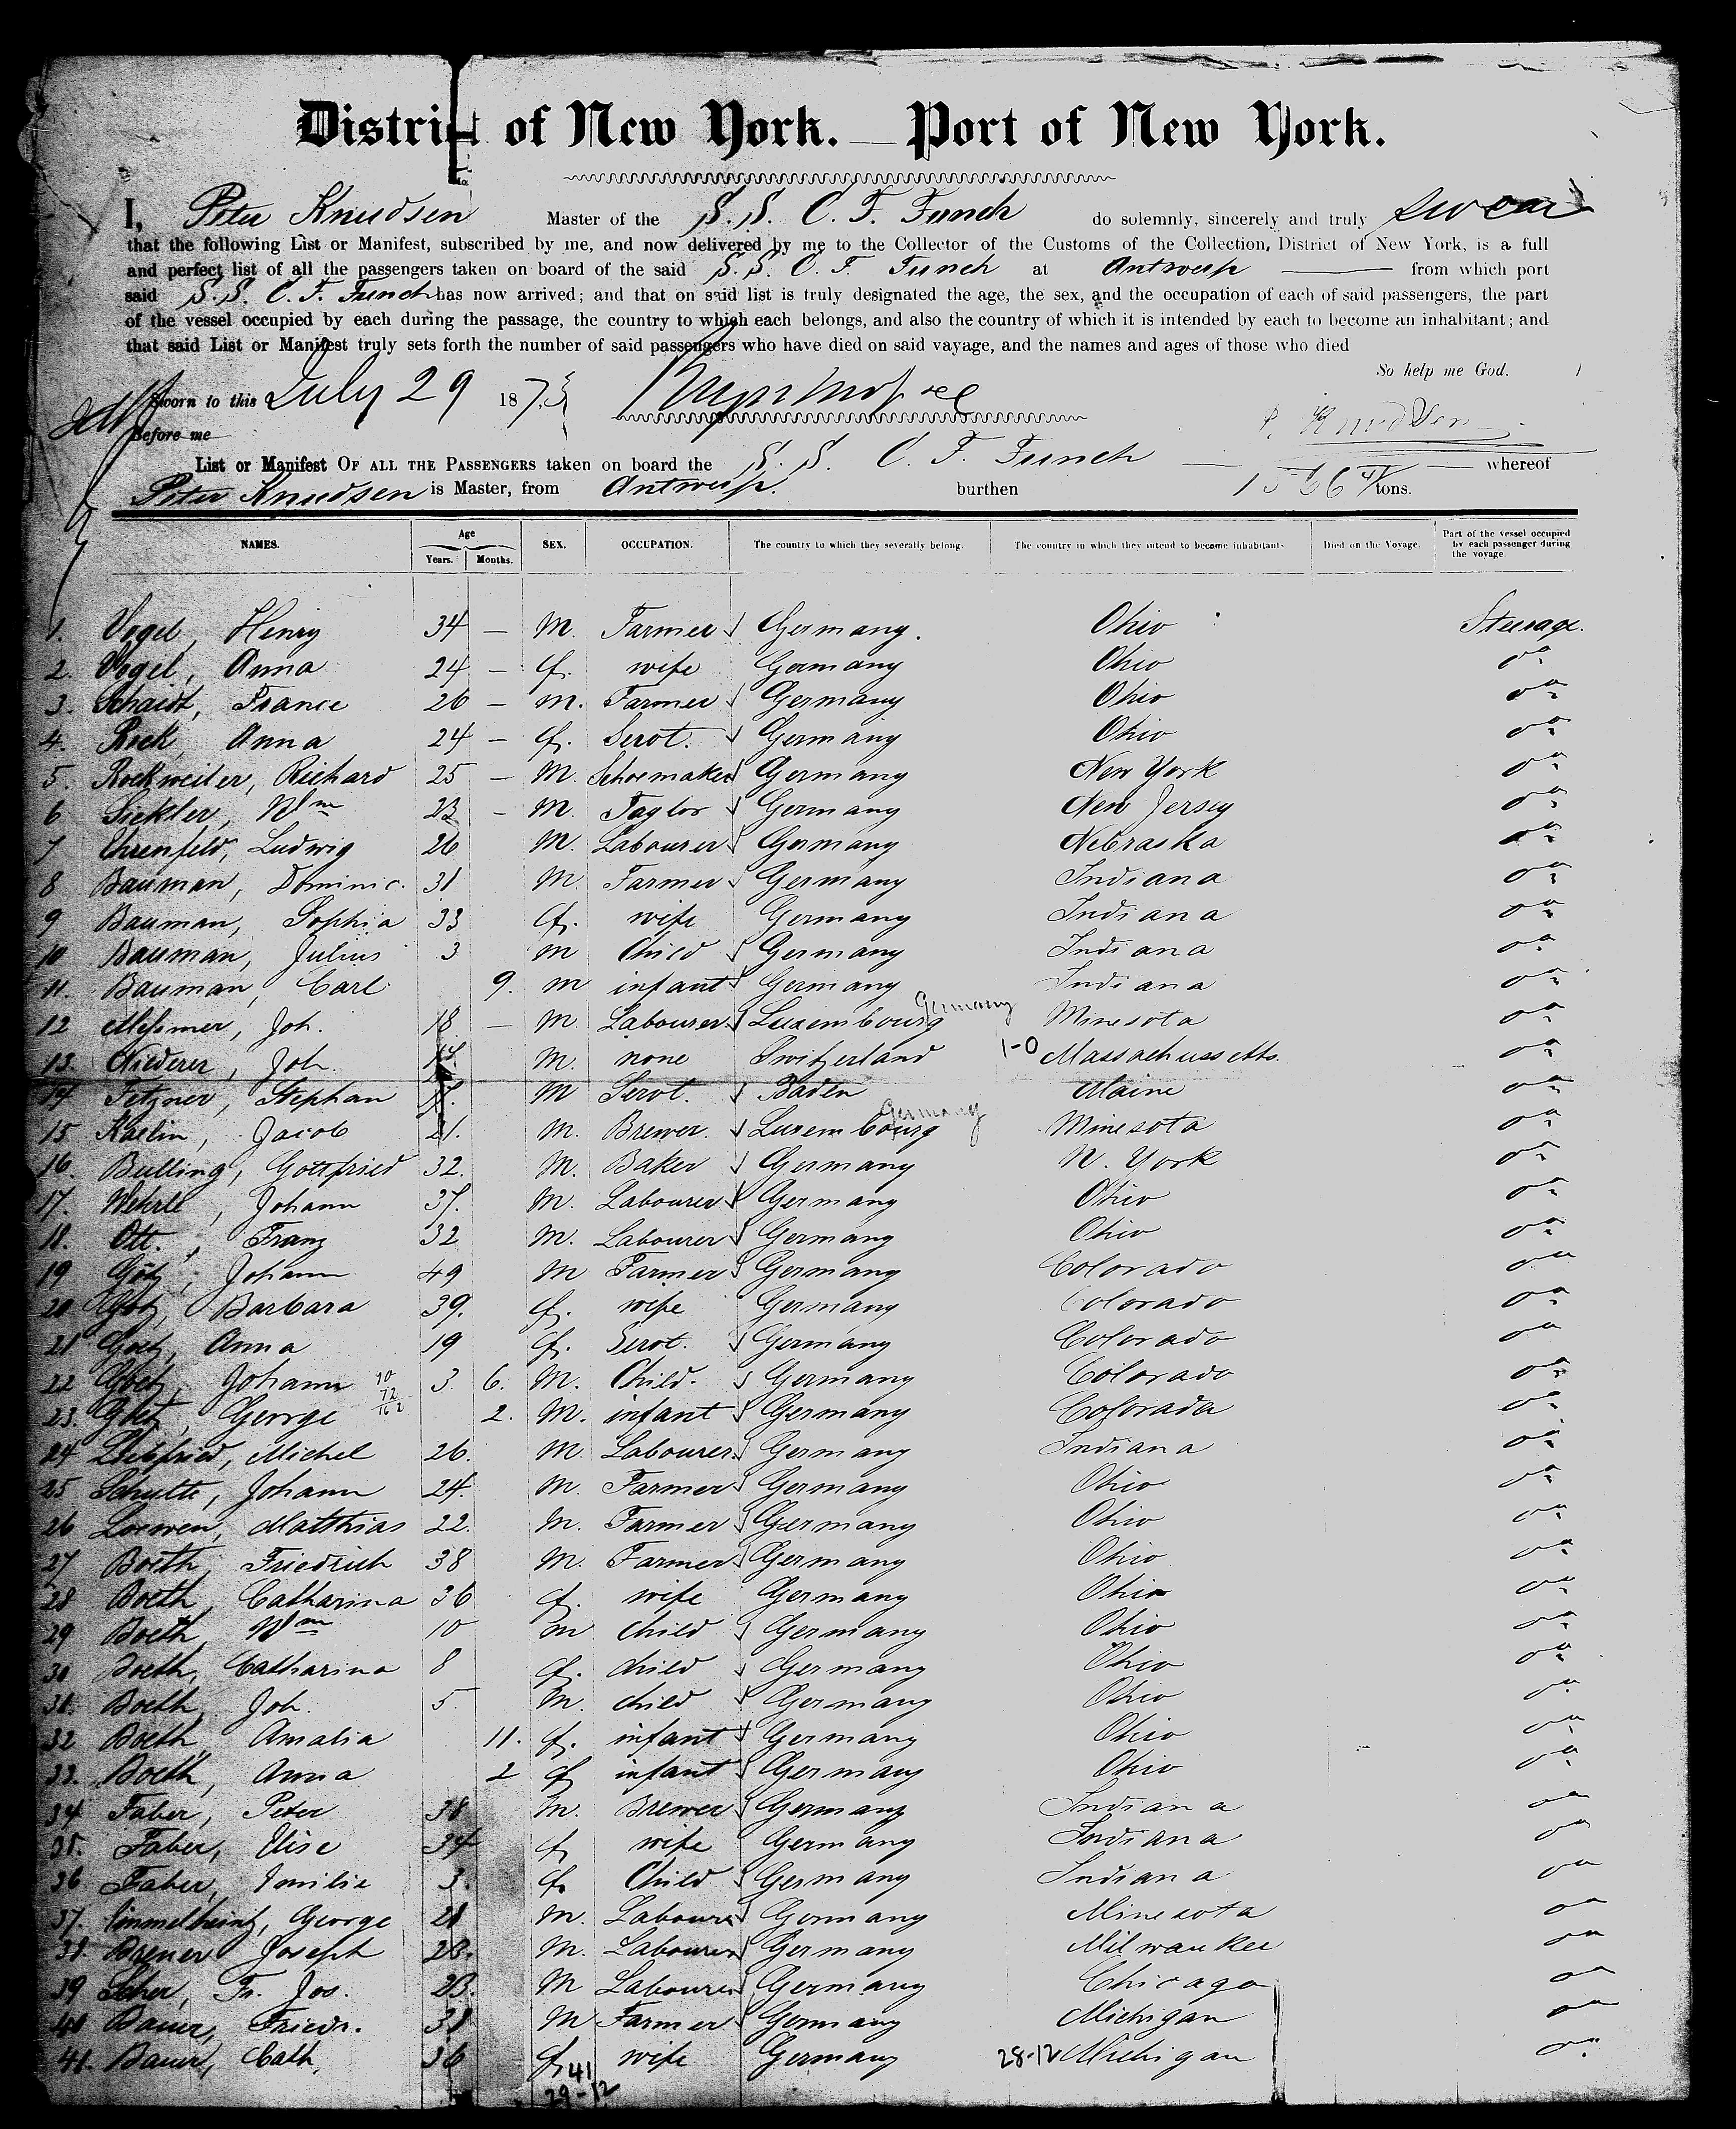 District of New York. — Port of New York.
I, Peter Knudsen Master of the S.S. C. F. Funch do solemnly, sincerely and truly swear
that the following List or Manifest, subscribed by me, and now delivered by me to the Collector of the Customs of the Collection, District of New York, is a full
and perfect list of all the passengers taken on board of the said S.S. C. F. Funch at Antwerp — from which port
said S.S. C. F. Funch has now arrived; and that on said list is truly designated the age, the sex, and the occupation of each of said passengers, the part
of the vessel occupied by each during the passage, the country to which each belongs, and also the country of which it is intended by each to become an inhabitant; and
that said List or Manifest truly sets forth the number of said passengers who have died on said vayage, and the names and ages of those who died
So help me God.
Sworn to this July 29 1873
Before me
P. Knudsen
List or Manifest OF ALL THE PASSENGERS taken on board the S. S. C. F. Funch — whereof
Peter Knudsen is Master, from Antwerp. burthen tons.
NAMES. Age Years. Months. SEX. OCCUPATION. The country to which they severally belong. The country in which they intend to become inhabitants Died on the Voyage. Part of the vessel occupied by each passenger during the voyage.
1. Vogel, Henry 34 — M. Farmer Germany. Ohio Steerage.
2. Vogel, Anna 24 — f. wife Germany Ohio do
3. Schaidt, France 26 — M. Farmer Germany Ohio do
4. Rock, Anna 24 — f. Servt. Germany Ohio do
5. Rockweiler, Richard 25 — M. Schoemaker Germany New York do
6 Sickler, Wm 23 — M. Taylor Germany New Jersey do
7 Ehrenfeld, Ludwig 26 M. Labourer Germany Nebraska do
8 Bauman, Dominic. 31 M. Farmer Germany Indiana do
9 Bauman, Sophia 33 f. wife Germany Indiana do
10 Bauman, Julius 3 M Child Germany Indiana do
11. Bauman, Carl 9. M infant Germany Indiana do
12 Messmer, Joh. 18 — M. Labourer Luxembourg Germany Minesota do
13. Niederer, Joh. M. none Switzerland 1-0 Massachussetts. do
14 Fetzner, Stephan M Servt. Baden Maine do
15 Kaelin, Jacob 21. M. Brewer. Luxembourg Germany Minesota do
16. Bulling, Gottfried 32. M. Baker Germany N. York do
17. Wehrle, Johann 37. M. Labourer Germany Ohio do
18. Ott., Franz 32 M. Labourer Germany Ohio do
19 Götz, Johann 49 M Farmer Germany Colorado do
20 Götz, Barbara 39. f. wife Germany Colorado do
21 Goetz, Anna 19 f. Servt. Germany Colorado do
22 Goetz, Johann 90 72 162 3. 6. M. Child. Germany Colorado do
23. Goetz, George 2. M. infant Germany Colorada do
24 Leibfried, Michel 26. M. Labourer Germany Indiana do
25 Schulte, Johann 24. M. Farmer Germany Ohio do
26 Loewen, Matthias 22. M. Farmer Germany Ohio do
27 Boeth, Friedrich 38 M. Farmer Germany Ohio do
28 Boeth, Catharina 36 f. wife Germany Ohio do
29 Boeth, Wm 10 M child Germany Ohio do
30 Boeth, Catharina 8 f. child Germany Ohio do
31. Boeth, Joh. 5 M. child Germany Ohio do
32 Boeth, Amalia 11. f. infant Germany Ohio do
33. Boeth, Anna 2 f infant Germany Ohio do
34 Faber, Peter 38 M. Brewer Germany Indiana do
35. Faber, Elise 34 f wife Germany Indiana do
36 Faber, Emilie 3. f. Child Germany Indiana do
37. George 28 M. Labourer Germany Minesota do
38. Brener Joseph 23. M. Labourer Germany Milwaukee do
39 Scher, Fr. Jos. 23. M Labourer Germany Chicago do
40 Bauer, Friedr. 38 M Farmer Germany Michigan do
41. Bauer, Cath. 36 f. wife Germany 28-12 Michigan do
41
29-12